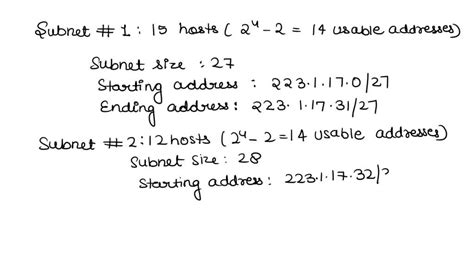 Subnet # 1: 15 hosts ( 2⁴ - 2 = 14 usable addresses)
Subnet size : 27
Starting address : 223.1.17.0/27
Ending address: 223.1.17.31/27
Subnet # 2:12 hosts (2⁴ - 2 =14 usable addresses)
Subnet size: 28
Starting address: 223.1.17.32/